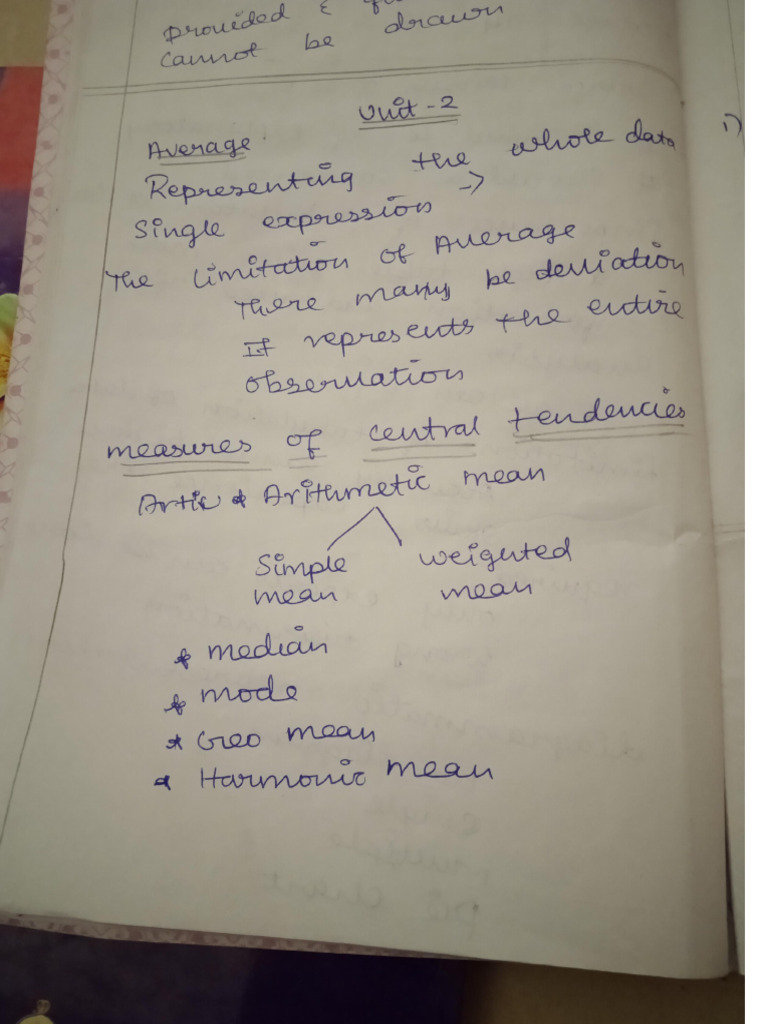 provided &
cannot be drawn
Unit - 2
Average
Representing the whole data
Single expression →
The limitation of Average
There many be deviation
It represents the entire
observation
measures of central tendencies
* Arithmetic mean
Simple mean
weighted mean
* median
* mode
* Geo mean
* Harmonic mean
1)